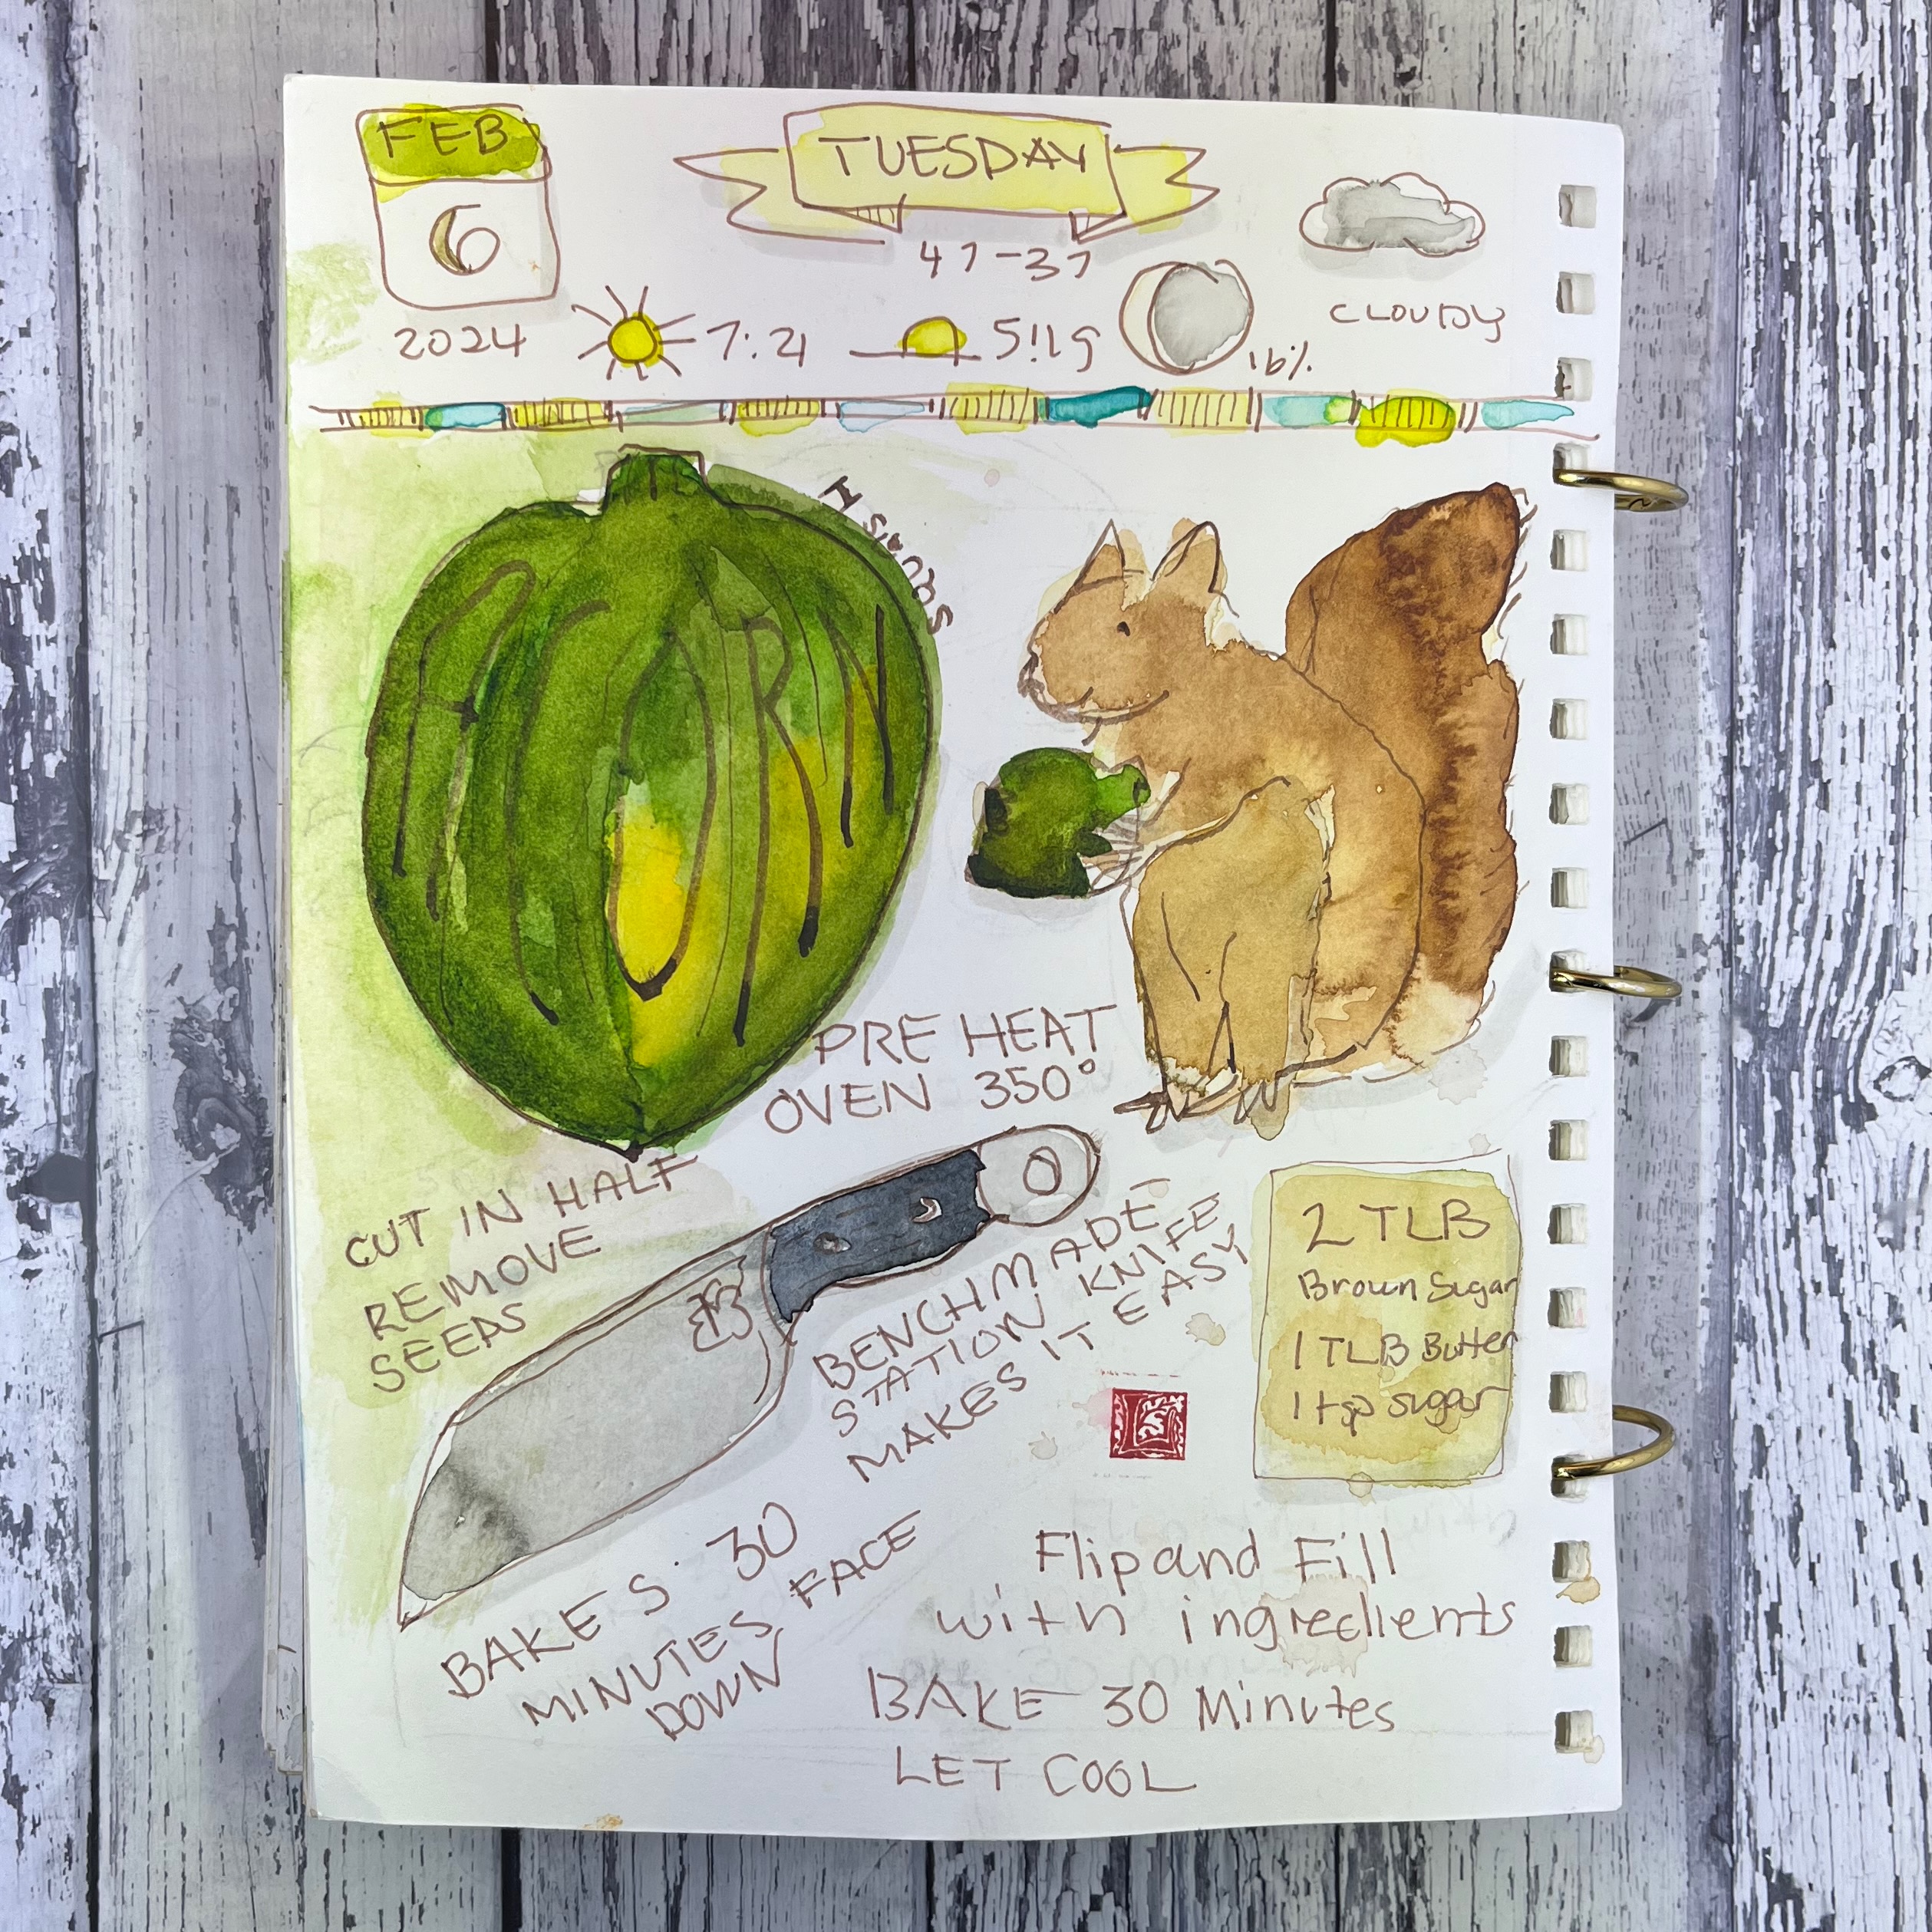 FEB
6
2024
TUESDAY
47-37
7:21
5:19
16%
CLOUDY
ACORN
SQUASH
PRE HEAT
OVEN 350°
CUT IN HALF
REMOVE
SEEDS
B
BENCHMADE
STATION KNIFE
MAKES IT EASY
2 TLB
Brown Sugar
1 TLB Butter
1 tsp sugar
BAKES 30
MINUTES FACE
DOWN
Flip and Fill
with ingredients
BAKE 30 Minutes
LET COOL